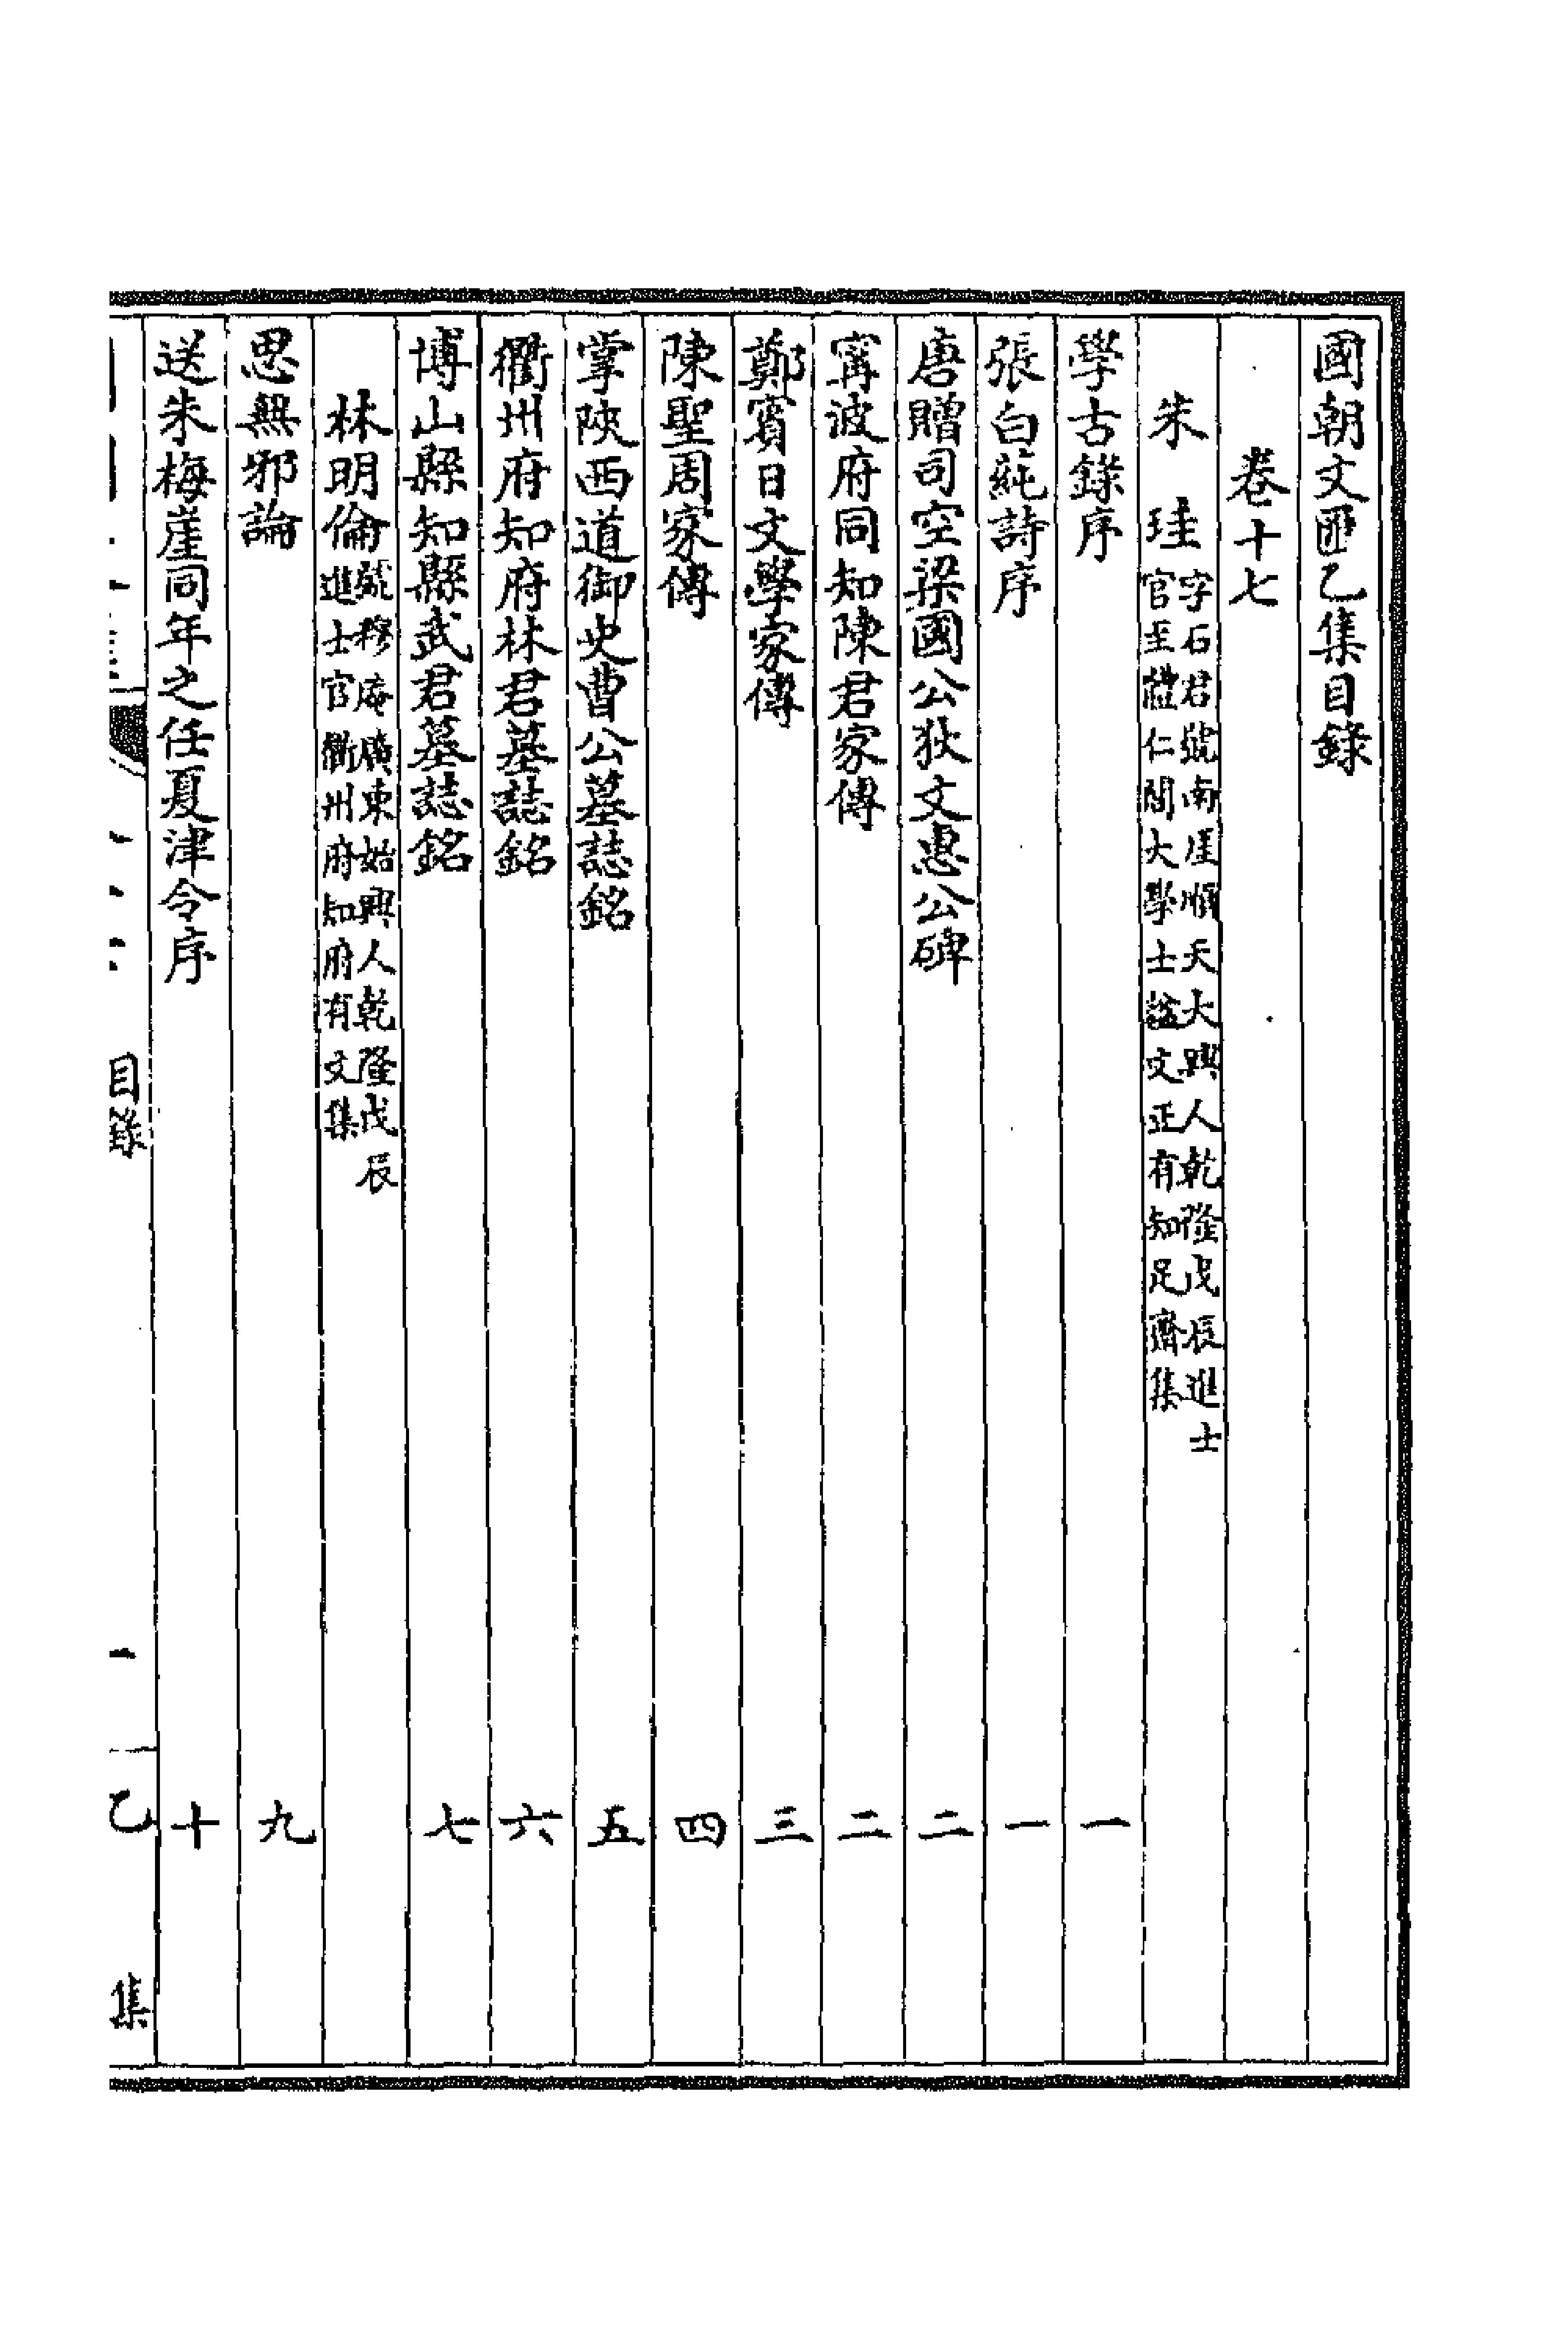 國朝文匯乙集目錄
卷十七
朱珪 字石君號南厓順天大興人乾隆戊辰進士
官至體仁閣大學士諡文正有知足齋集
學古錄序 一
張白蒓詩序 一
唐贈司空梁國公狄文惠公碑 二
甯波府同知陳君家傳 二
鄭賓日文學家傳 三
陳聖周家傳 四
掌陝西道御史曹公墓誌銘 五
衢州府知府林君墓誌銘 六
博山縣知縣武君墓誌銘 七
林明倫 號穆庵廣東始興人乾隆戊辰
進士官衢州府知府有文集
思無邪論 九
送朱梅崖同年之任夏津令序 十
目錄 一 乙集